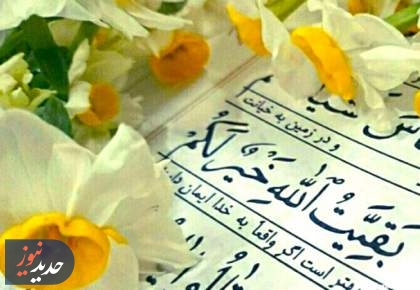 و در زمین به خیانت
بَقِیَّتُ اللهِ خَیْرٌ لَکُمْ
است اگر واقعاً به خدا ایمان
حدید نیوز